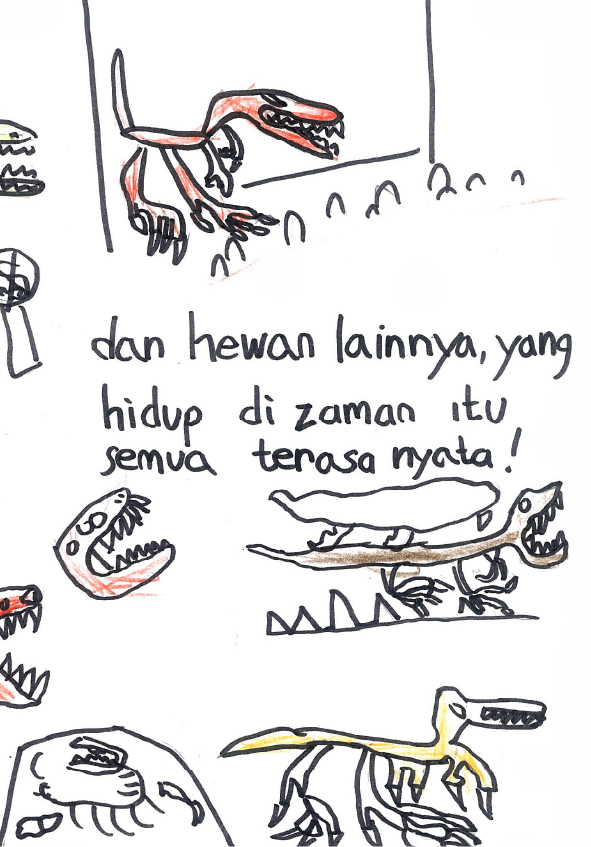 dan hewan lainnya, yang
hidup di zaman itu
semua terasa nyata!